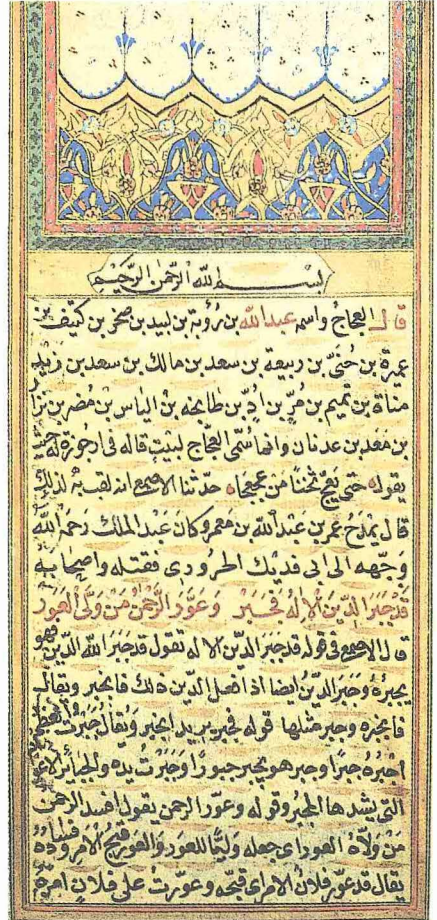 بسم الله الرحمن الرحيم
قال العجاج واسمه عبدالله بن رؤبة بن لبيد بن صخر بن كثيف بن
عميرة بن حُنَيّ بن ربيعة بن سعد بن مالك بن سعد بن زيد
مناة بن تميم بن مُرّ بن ادّ بن طابخه بن الياس بن مُضر بن نزا
بن مَعد بن عدنان وانما سُمّى العجّاج لبيتٍ قاله فى ارجوزة له
يقوله حتى يَعِجّ ثخنًا مَن عجعجا ه حدّثنا الاصمعي انه لقب به لذلك
قال يمدَح عمر بن عَبْد الله بن مَعمر وكان عَبد الملك رَحمه الله
وَجّهه الى ابى فديك الحَرُورى فقتله واصحابه
قَدْ جَبَرَ الدّينَ الْاِلهُ فَجَبَرْ وَعَوَّرَ الرَّحْمٰنُ مَنْ وَلَّى الْعَوَرْ
قال الاصمعي فى قوله قد جَبَرَ الدّينَ الاله تقول قد جبَرَ الله الدّين فهو
يجبرُهُ وَجَبَرَ الدّينُ ايضا اذا فعل الدّين ذلك فانجبر ويقال
فانجبره وجبر مثلها قوله فجبر يريد انجبر وَيقال جَبَرتُ العظم
اَجْبُرُه جَبرًا وجبر هو يجبر جبورًا وَجَبَرتُ يده والجبائر
التى يشد ها المجبر وقوله وعوّر الرحمن يقول افسد الرحمن
مَنْ وَلّاهُ العَوَر اى جعله وَليًّا للعَور وَالعَور قبح الامر وفساده
يقال قد عوّر فلانٌ الامر اى قبّحه وعوّرت على فلان امرهُ